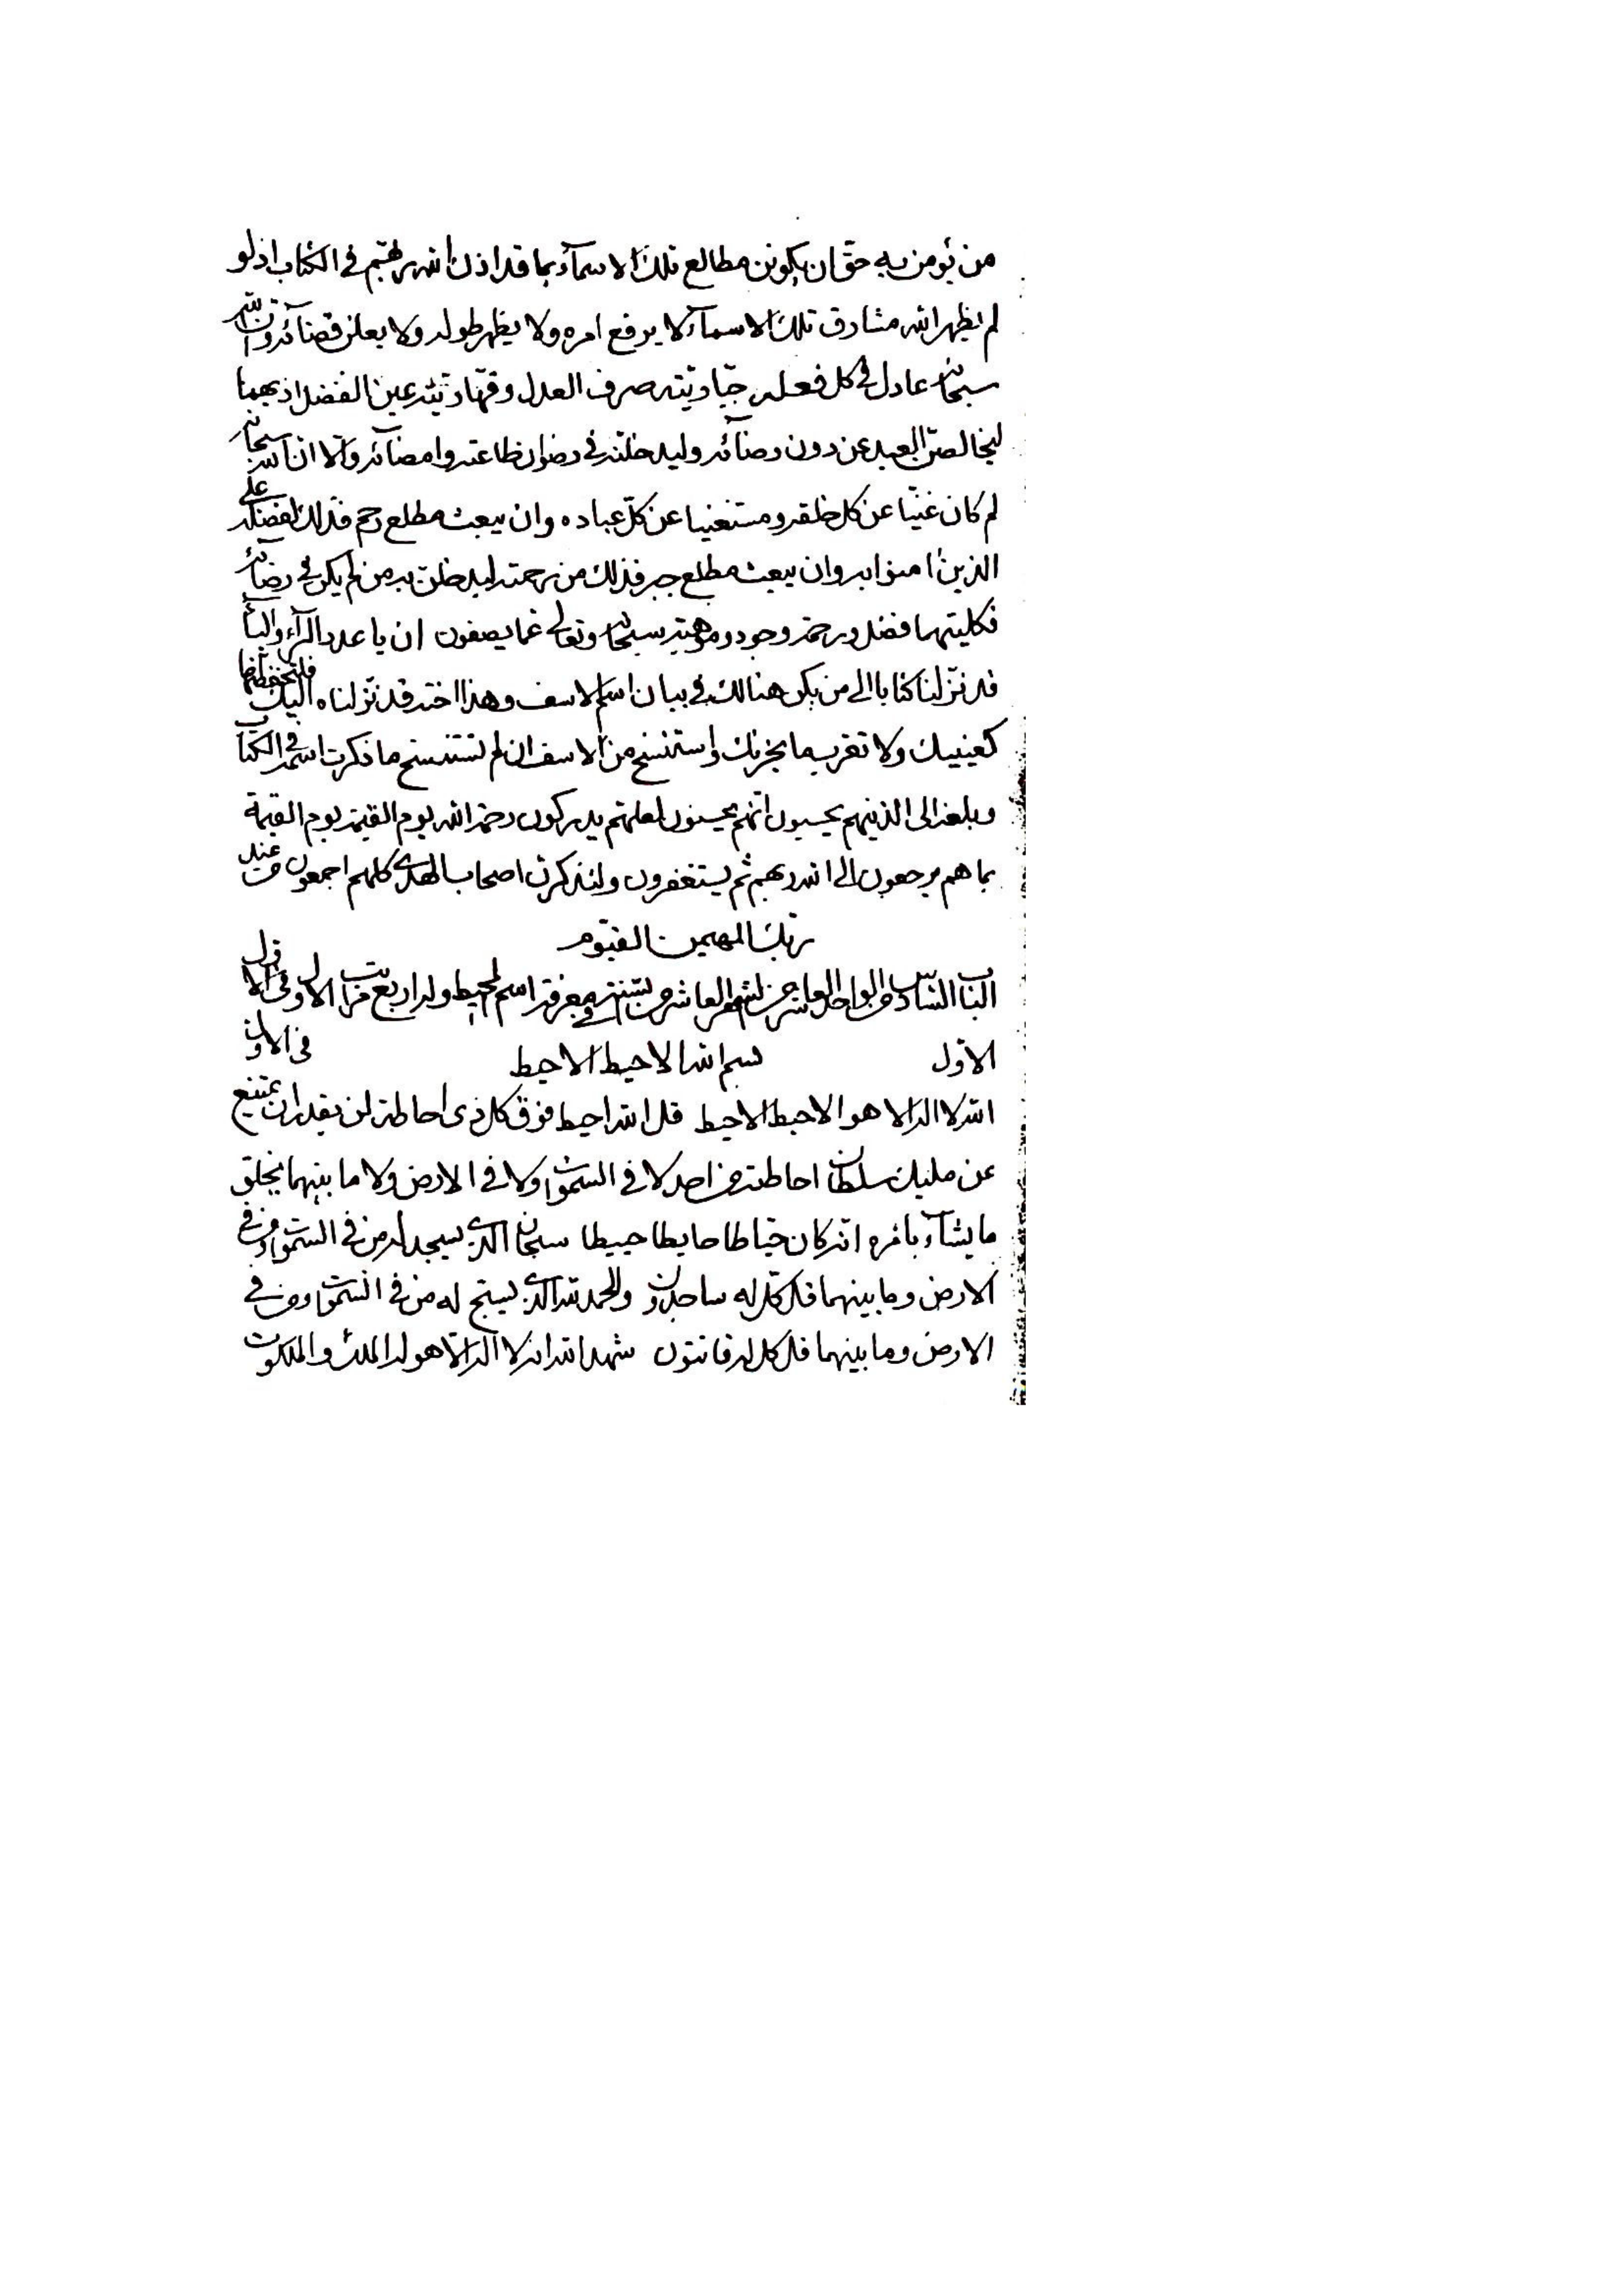 من يؤمن به حق ان يكونن مطالع تلك الاسمآء بما قد اذن الله لهم في الكتاب اذ لو
لم يظهر الله مشارق تلك الاسمآء لا يرفع امره ولا يظهر طوله ولا يعلن قضآئه وان الله
سبحانه عادل في كل فعله جباريته صرف العدل وقهاريته عين الفضل اذ بهما
ليخالصن العبد عن دون رضآئه وليدخلنه في رضوان طاعته وامضآئه والا ان الله سبحانه
لم كان غنيا عن كل خلقه ومستغنيا عن كل عباده وان يبعث مطلع رحم فذلك لفضله على
الذين امنوا به وان يبعث مطلع جبر فذلك من رحمته ليدخلن به من لم يكن في رضآئه
فكليتهما فضل ورحمة وجود وموهبة سبحانه وتعالى عما يصفون ان يا عدد الرآء والبآء
قد نزلنا كتابا الى من يكن هنالك في بيان اسم الاسف وهذا اخته قد نزلناه اليك فلتحفظنها
كعينيك ولا تقرب ما يحزنك واستنسخ من الاسف ان لم تستنسخ ما ذكرت اسمه في الكتاب
وبلغه الى الذينهم يحسبون انهم يحسنون لعلهم يدركون رحمة الله يوم القيمة يوم القيمة
بما هم يرجعون الى الله ربهم ثم يستغفرون ولتذكرن اصحاب الهدى كلهم اجمعون من عند
ربك المهيمن القيوم
الباب السادس من الواحد العاشر من الشهر العاشر من السنة في معرفة اسم المحيط وله اربع مراتب الاول في الاول
الاول بسم الله الاحيط الاحيط في الاول
الله لا اله الا هو الاحيط الاحيط قل الله احيط فوق كل ذى احاطة لن يقدر ان يمتنع
عن مليك سلطان احاطته من احد لا في السموات ولا في الارض ولا ما بينهما يخلق
ما يشآء بامره انه كان حياطا حايطا حييطا سبحان الذي يسجد له من في السموات ومن في
الارض وما بينهما قل كل له ساجدون والحمد لله الذي يسبح له من في السموات ومن في
الارض وما بينهما قل كل له قانتون شهد الله انه لا اله الا هو له الملك والملكوت